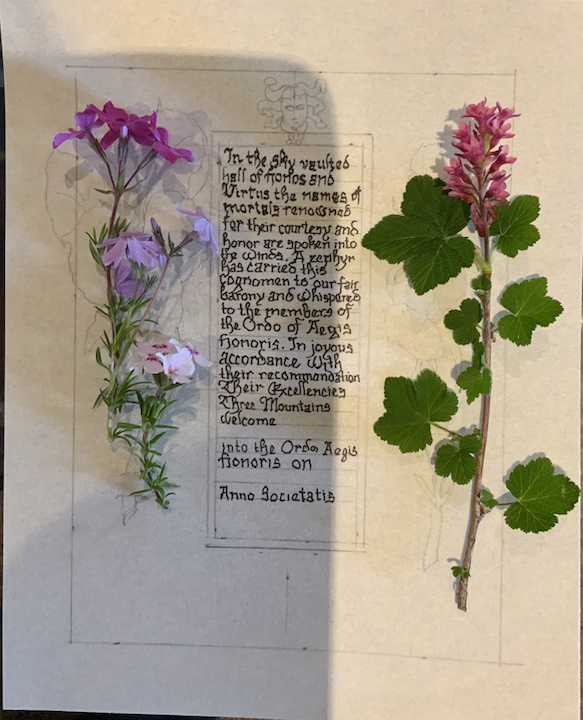 In the sky vaulted
hall of Honos and
Virtus the names of
mortals renowned
for their courtesy and
honor are spoken into
the winds. A zephyr
has carried this
cognomen to our fair
barony and whispered
to the members of
the Ordo of Aegis
Honoris. In joyous
accordance with
their recommandation
Their Excellencies
Three Mountains
welcome
into the Ordo Aegis
Honoris on
Anno Societatis